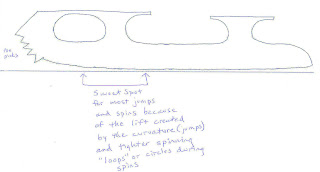 toe
picks
Sweet Spot
for most jumps
and spins because
of the lift created
by the curvature (jumps)
and tighter spinning
"loops" or circles during
spins